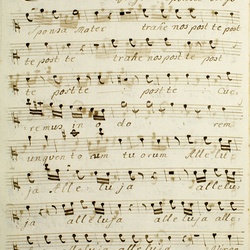 Sponsa Mater trahe nos post te post
te post te trahe nos post te post
te post te post te Cur
remus in o do rem
unguento rum tuorum Allelu
ja Alle lu ja alleluj
ja alleluja alleluja alle
alleluja alleluja